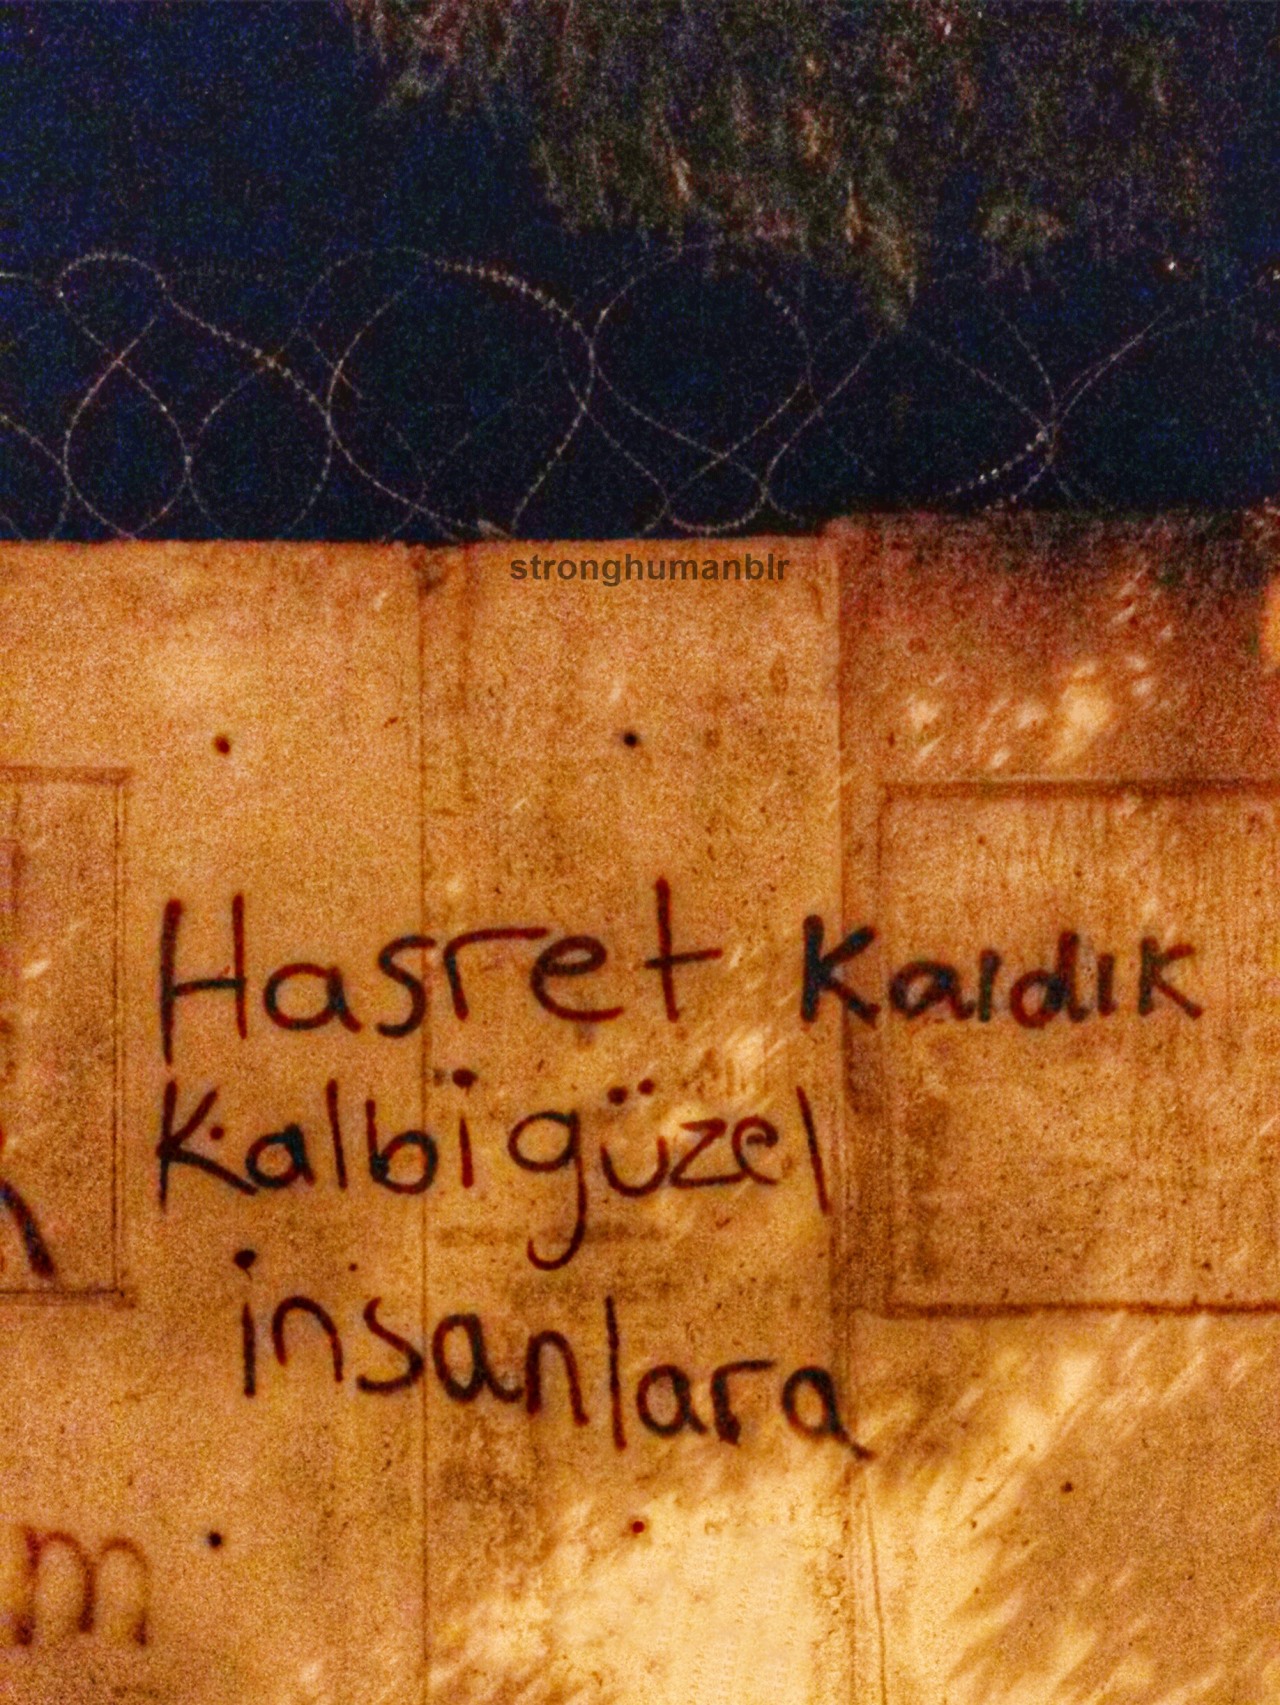 stronghumanblr
Hasret kaldık
kalbi güzel
insanlara
m